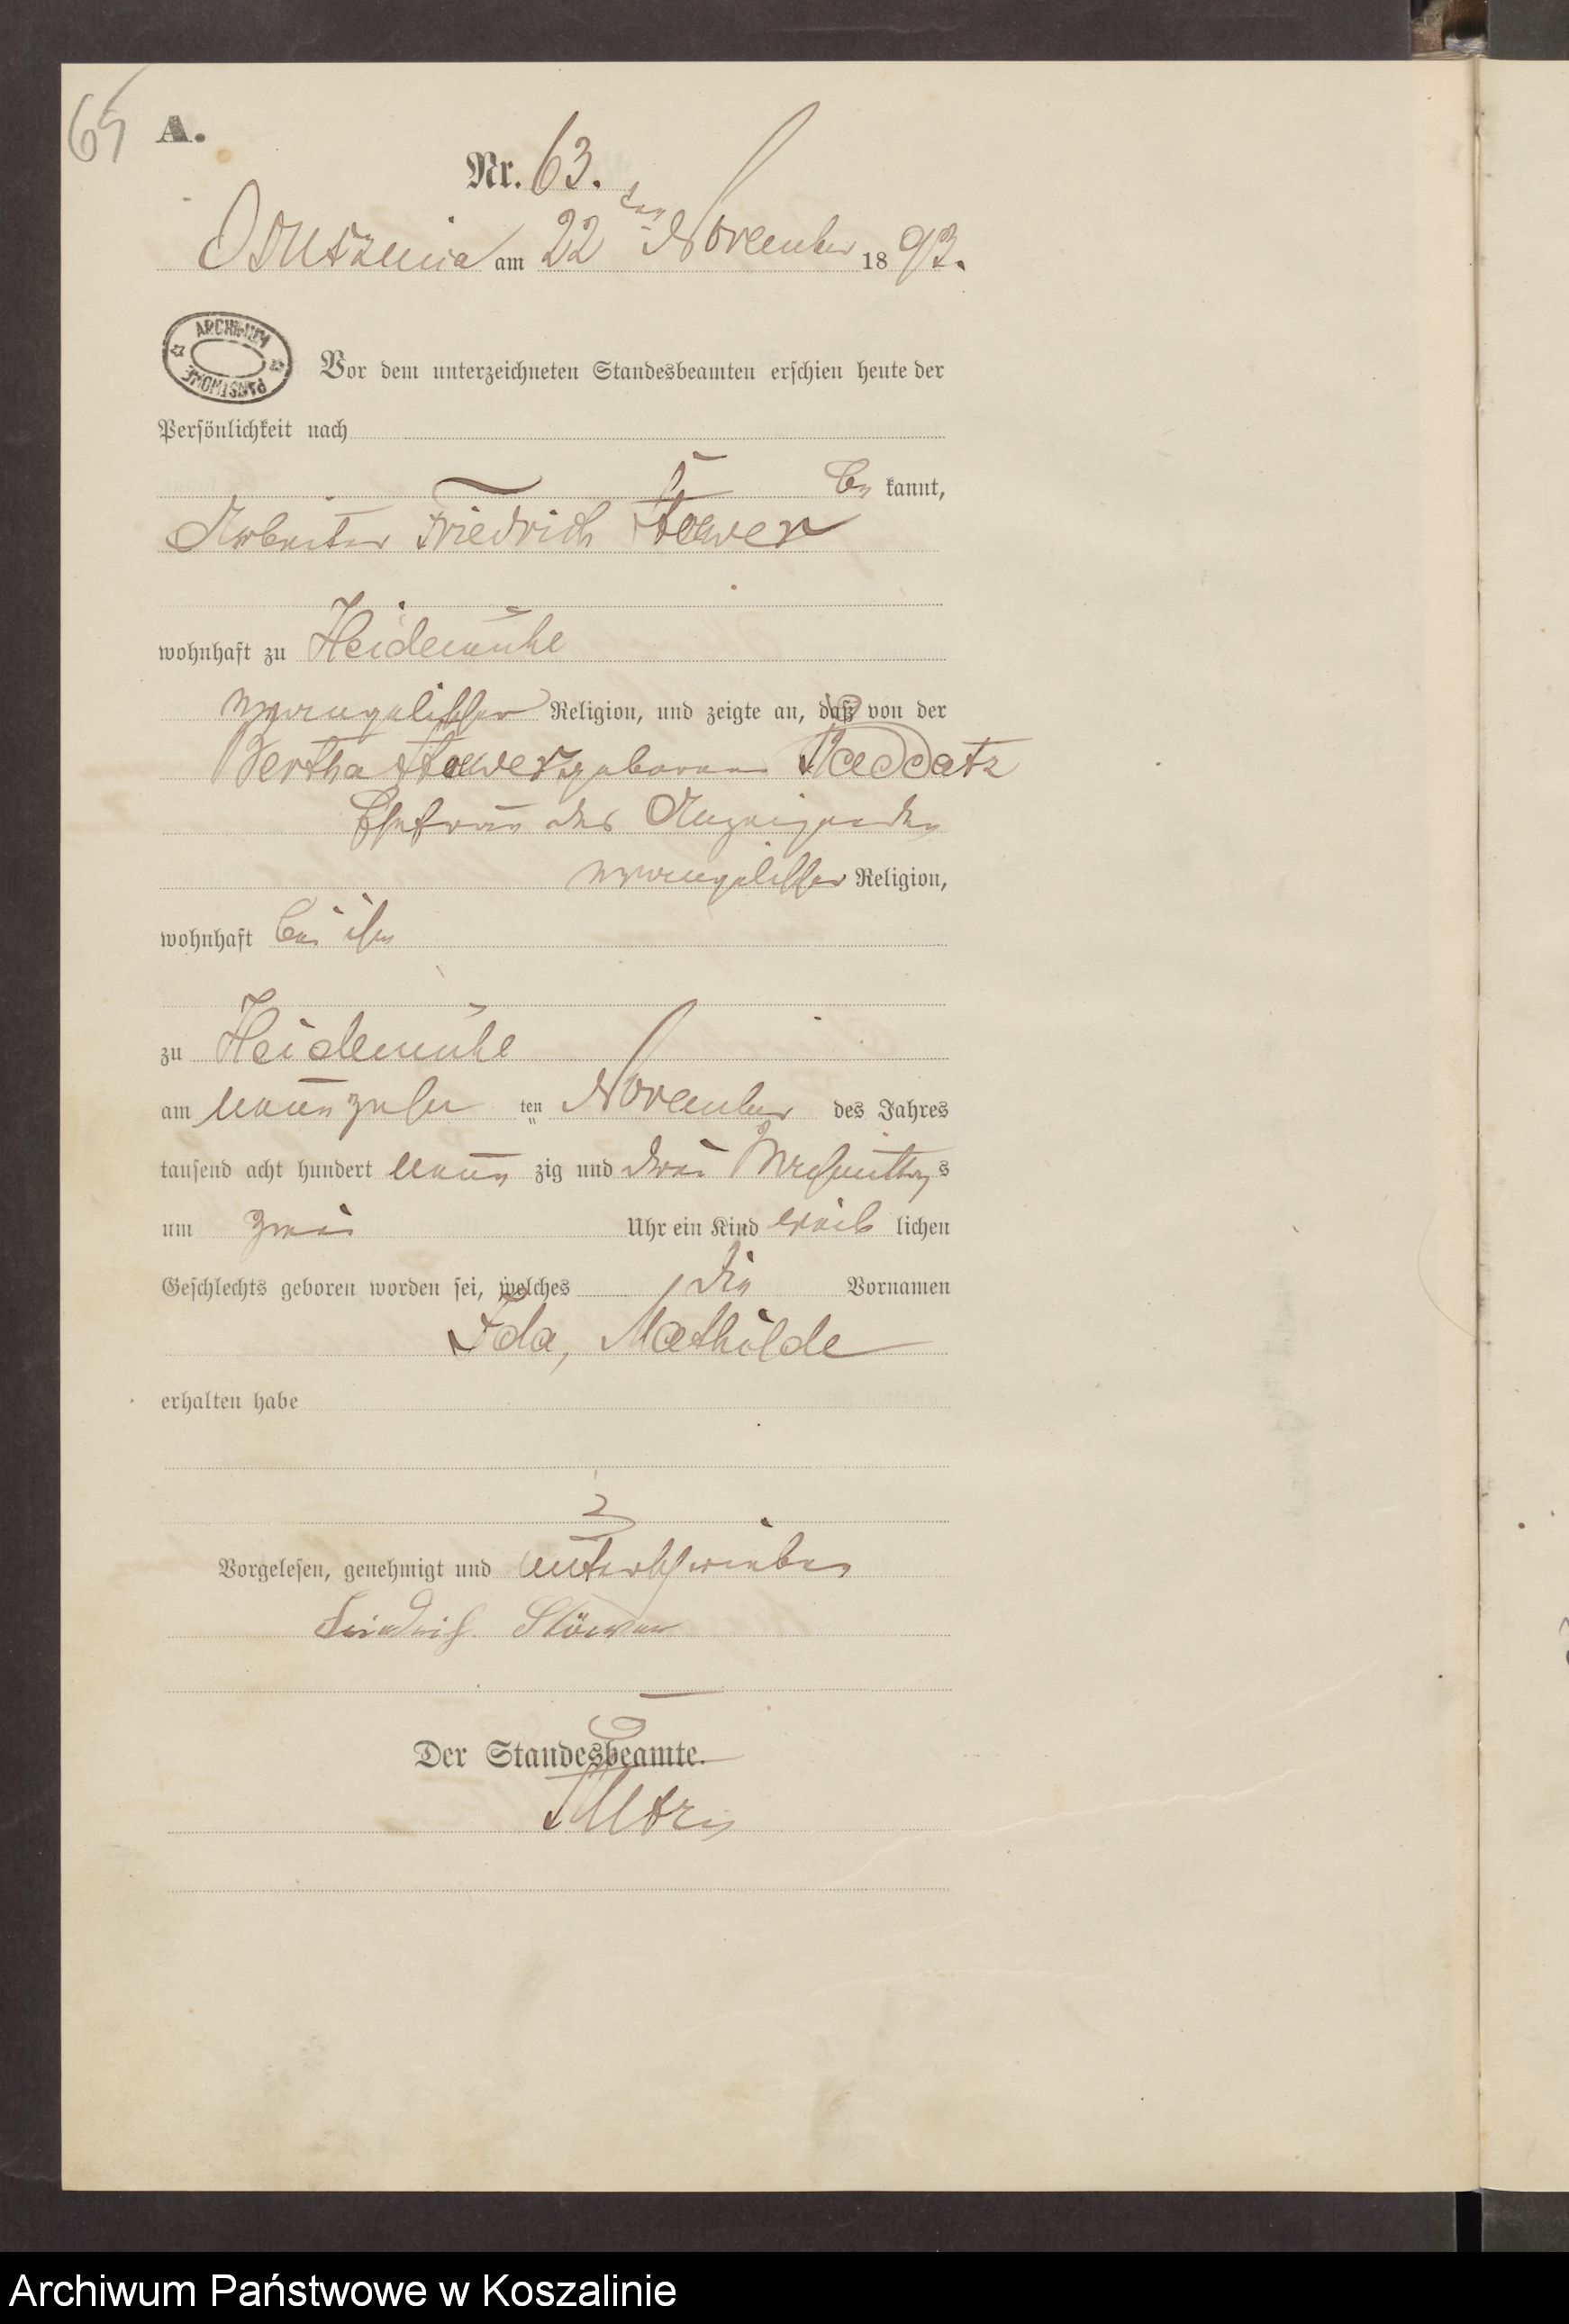 65
A.
Nr. 63.
Osusznica am 22 ten November 1893.
ARCHIWUM PAŃSTWOWE
Vor dem unterzeichneten Standesbeamten erschien heute der
Persönlichkeit nach
be kannt,
Arbeiter Friedrich Stoewer
wohnhaft zu Heidemühl
evangelischer Religion, und zeigte an, daß von der
Bertha Stoewer geborenen Raddatz
Ehefrau des Anzeigenden
evangelischer Religion,
wohnhaft bei ihm
zu Heidemühl
am neunzehn ten November des Jahres
tausend acht hundert neun zig und drei Nachmittags
um zwei Uhr ein Kind weib lichen
Geschlechts geboren worden sei, welches die Vornamen
Ida, Mathilde
erhalten habe
Vorgelesen, genehmigt und unterschrieben
Friedrich Stöwer
Der Standesbeamte.
Archiwum Państwowe w Koszalinie